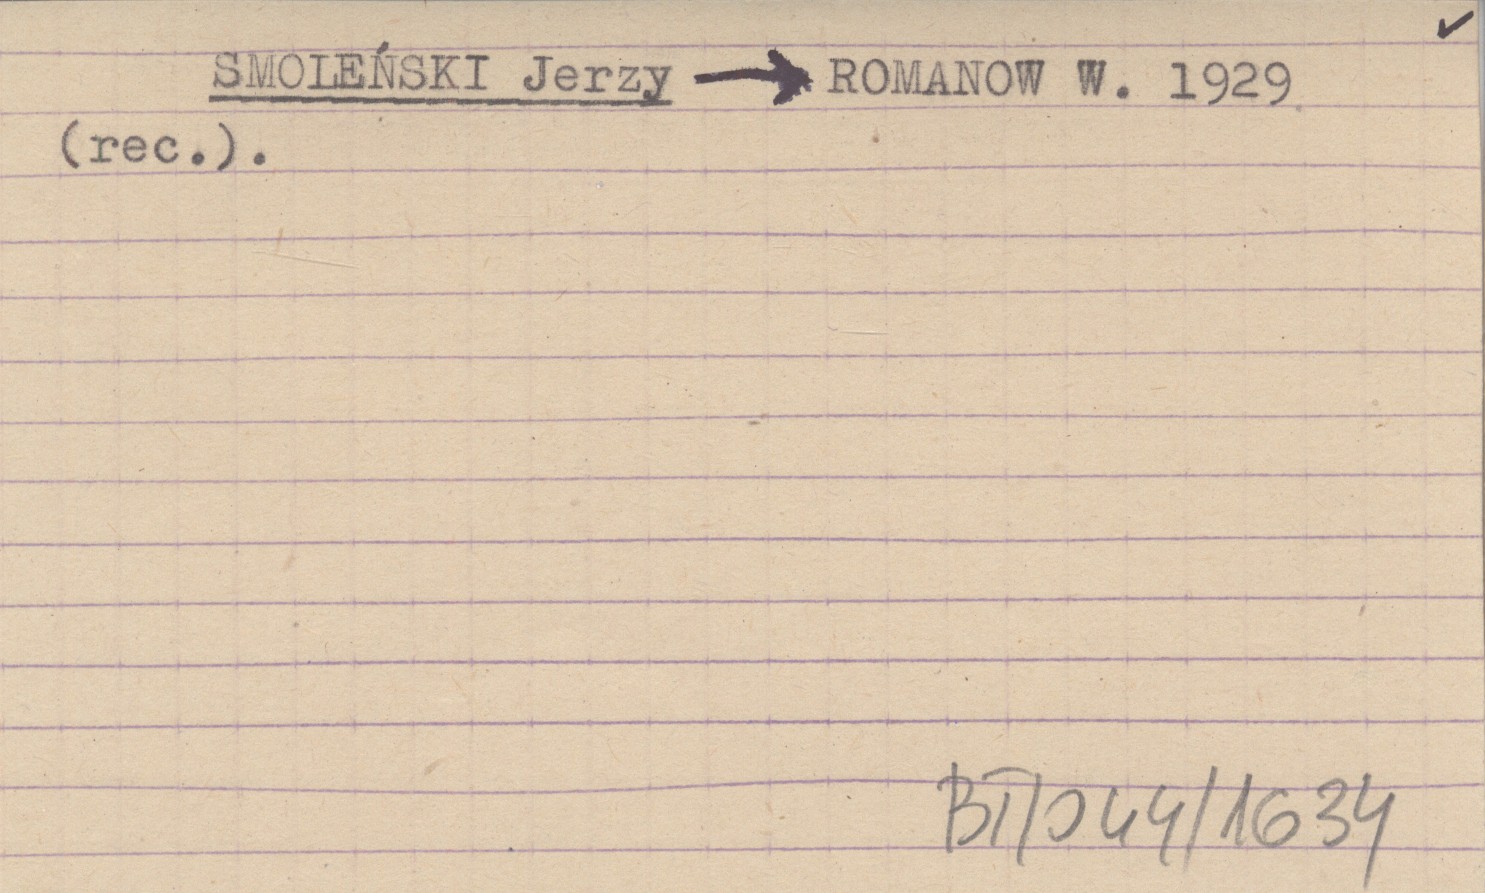 SMOLEŃSKI Jerzy → ROMANOW W. 1929
(rec.).
BI/044/1634